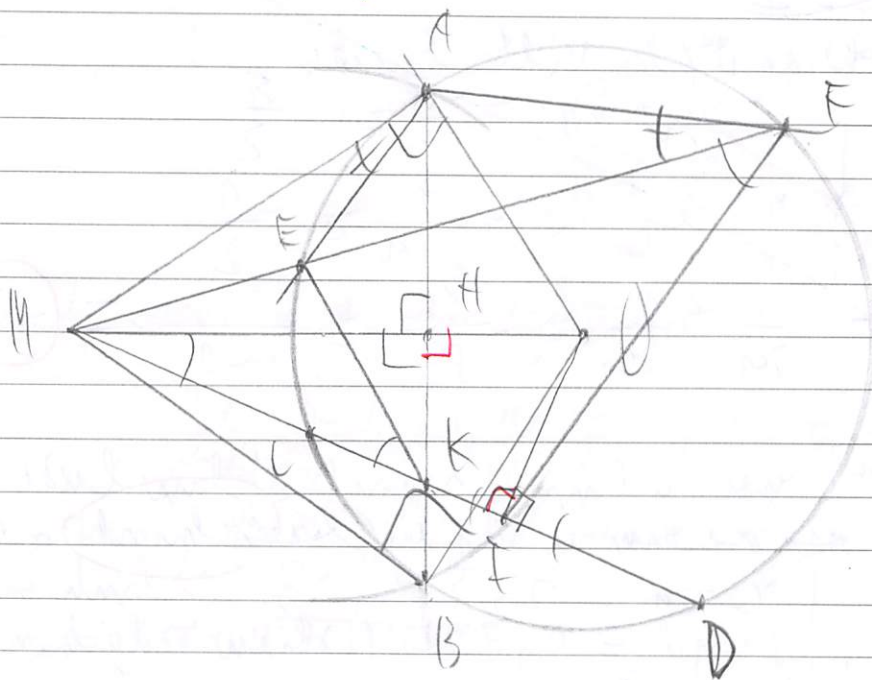 A
F
E
H
M
O
C
K
I
B
D